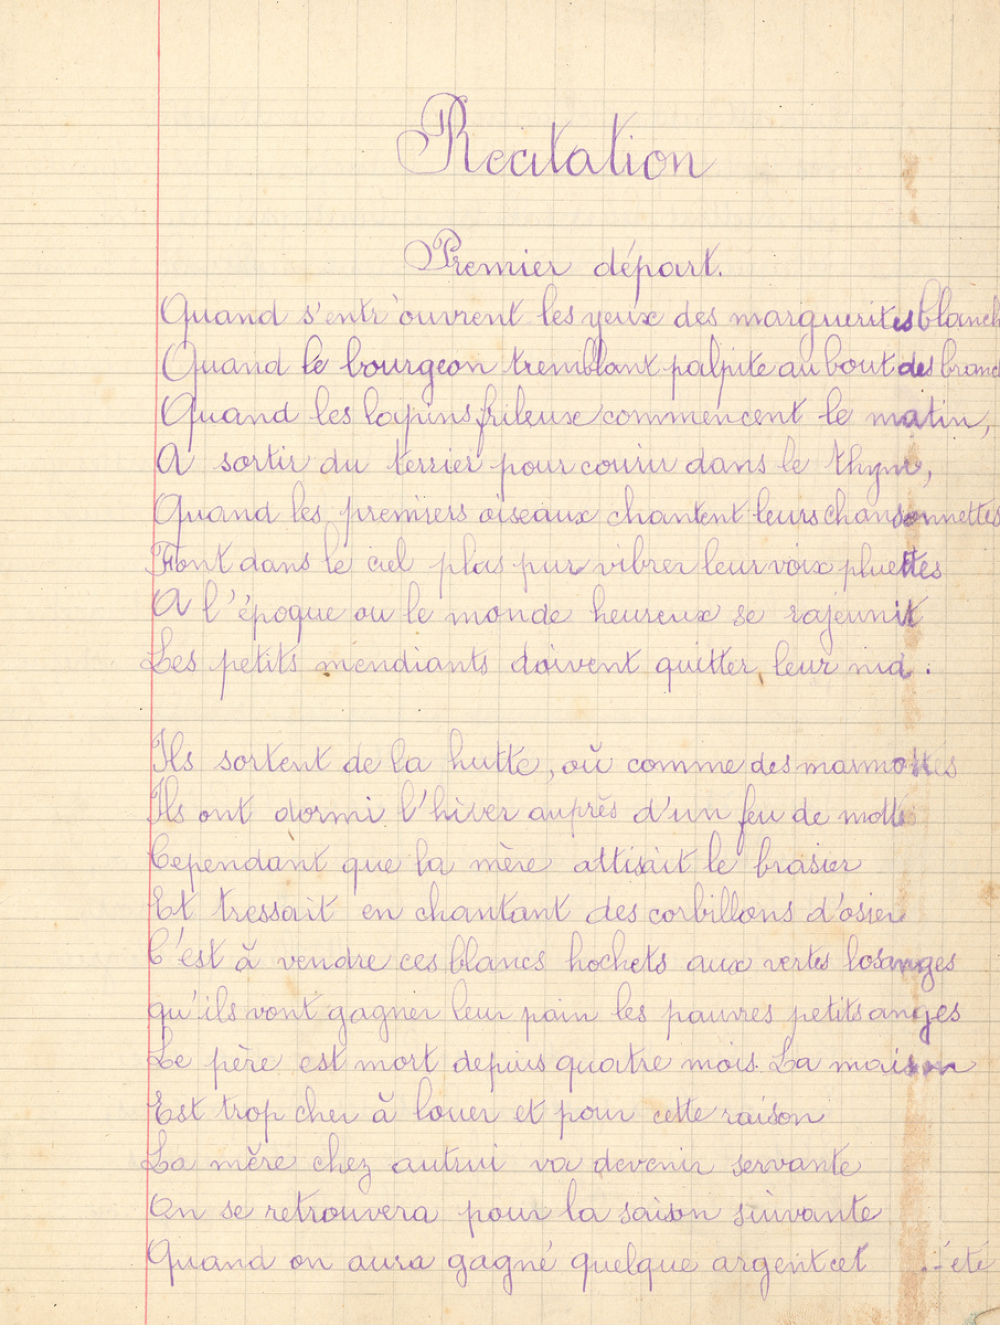 Recitation
Premier départ.
Quand s'entr'ouvrent les yeux des marguerites blanch
Quand le bourgeon tremblant palpite au bout des branc
Quand les lapins frileux commencent le matin,
A sortir du terrier pour courir dans le thym,
Quand les premiers oiseaux chantent leurs chansonnettes
Font dans le ciel plus pur vibrer leur voix pluettes
A l'époque ou le monde heureux se rajeunit
Les petits mendiants doivent quitter leur nid.
Ils sortent de la hutte, où comme des marmottes
Ils ont dormi l'hiver auprès d'un feu de motte
Cependant que la mère attisait le brasier
Et tressait en chantant des corbillons d'osier
C'est à vendre ces blancs hochets aux vertes losanges
qu'ils vont gagner leur pain les pauvres petits anges
Le père est mort depuis quatre mois. La maison
Est trop cher à louer et pour cette raison
La mère chez autrui va devenir servante
On se retrouvera pour la saison suivante
Quand on aura gagné quelque argent et été